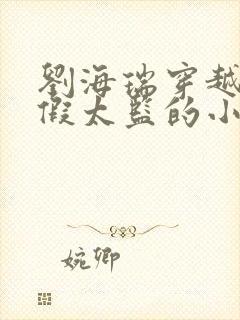 劉海瑞穿越
假太監的小
婉卿